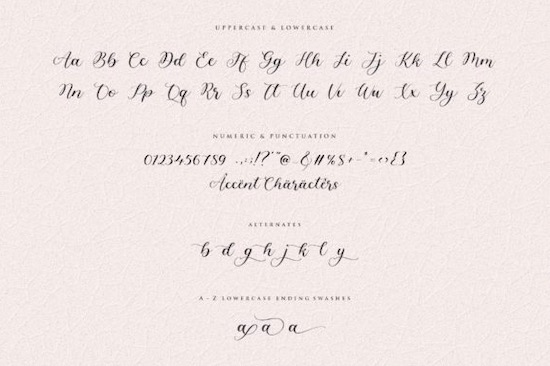 UPPERCASE & LOWERCASE
Aa Bb Cc Dd Ee Ff Gg Hh Ii Jj Kk Ll Mm
Nn Oo Pp Qq Rr Ss Tt Uu Vv Ww Xx Yy Zz
NUMERIC & PUNCTUATION
0123456789 .,:;!?'"@_&#%$+-*=<>{}
Accent Characters
ALTERNATES
b d g h j k l y
A - Z LOWERCASE ENDING SWASHES
a a a